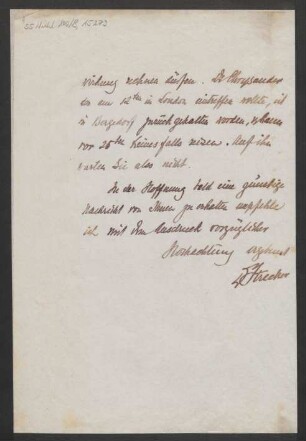 wirkung rechnen dürfen. Dr Chrysander
der am 12ten in London eintreffen wollte, ist
in Bergedorf zurückgehalten worden, u. kann
vor 25ten keinesfalls reisen. Auf ihn
warten Sie also nicht.
In der Hoffnung bald eine günstige
Nachricht von Ihnen zu erhalten empfehle
ich mit dem Ausdruck vorzüglicher
Hochachtung ergebenst
Strecker